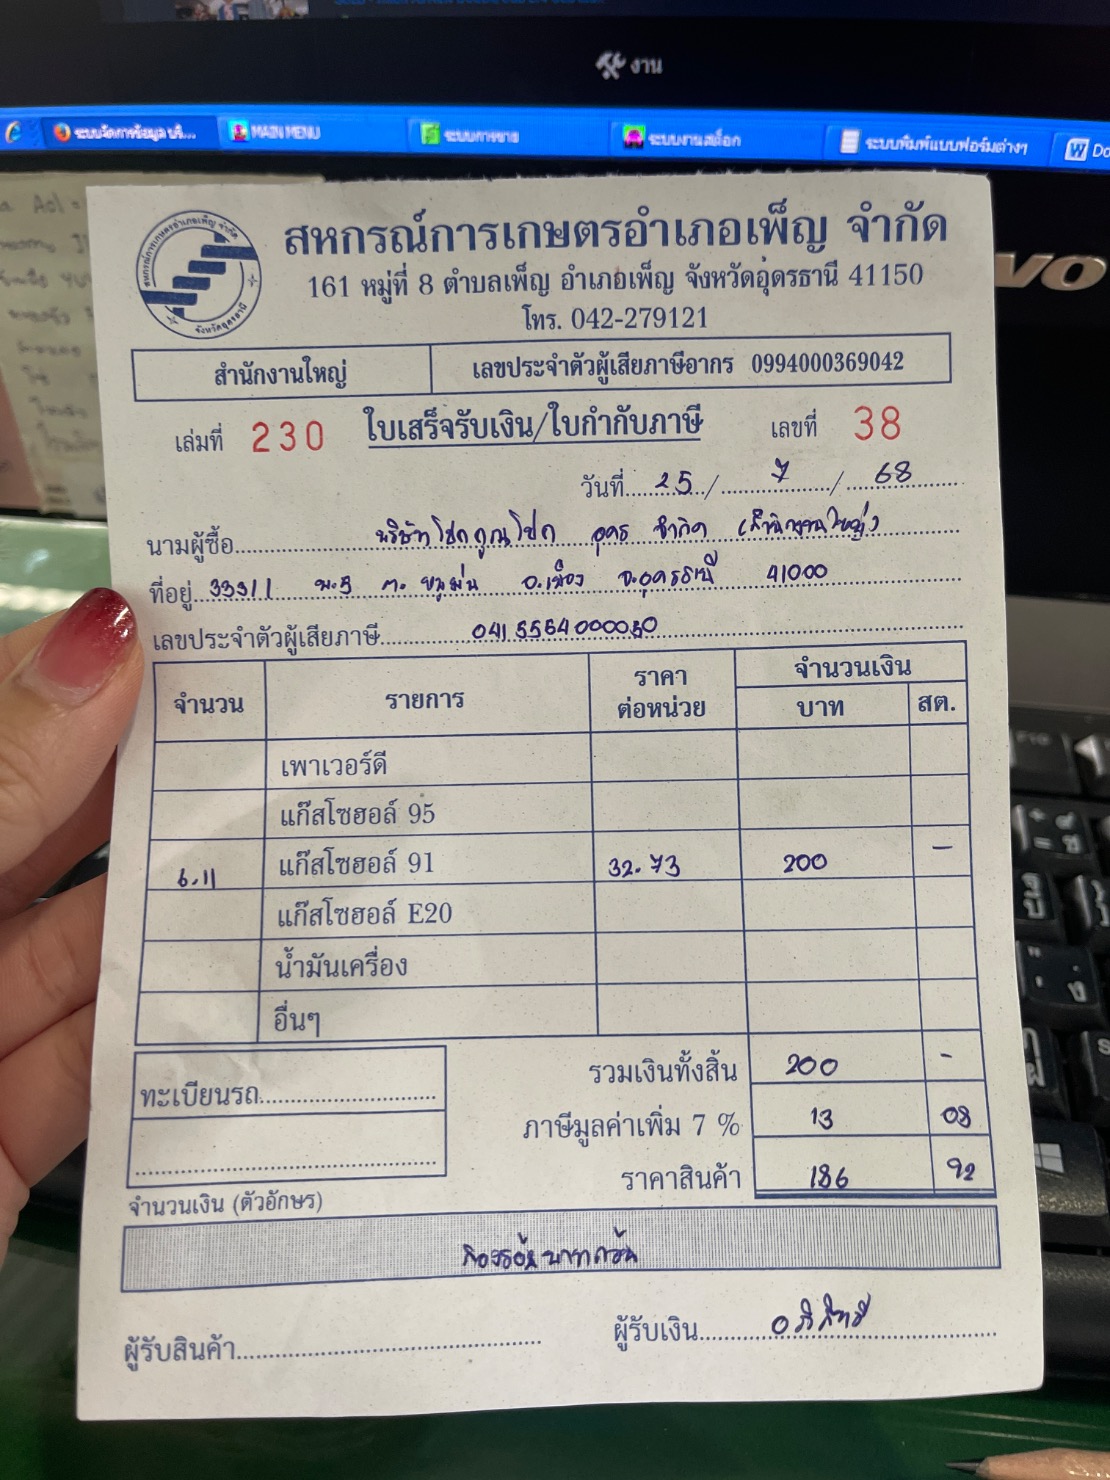 งาน
ระบบจัดการข้อมูล บริ...
MAIN MENU
ระบบการขาย
ระบบงานสต็อก
ระบบพิมพ์แบบฟอร์มต่างๆ
Do
Aol =
VO
สหกรณ์การเกษตรอำเภอเพ็ญ จำกัด
จังหวัดอุดรธานี
สหกรณ์การเกษตรอำเภอเพ็ญ จำกัด
161 หมู่ที่ 8 ตำบลเพ็ญ อำเภอเพ็ญ จังหวัดอุดรธานี 41150
โทร. 042-279121
สำนักงานใหญ่ เลขประจำตัวผู้เสียภาษีอากร 0994000369042
เล่มที่ 230 ใบเสร็จรับเงิน/ใบกำกับภาษี เลขที่ 38
วันที่ 25 / 7 / 68
นามผู้ซื้อ บริษัท โชคคูณโชค อุดร จำกัด (สำนักงานใหญ่)
ที่อยู่ 333/1 ม.5 ต. อ.เมือง จ.อุดรธานี 41000
เลขประจำตัวผู้เสียภาษี
จำนวน รายการ ราคาต่อหน่วย จำนวนเงิน
บาท สต.
เพาเวอร์ดี
แก๊สโซฮอล์ 95
6.11 แก๊สโซฮอล์ 91 32.73 200 -
แก๊สโซฮอล์ E20
น้ำมันเครื่อง
อื่นๆ
รวมเงินทั้งสิ้น 200 -
ทะเบียนรถ
ภาษีมูลค่าเพิ่ม 7 % 13 08
ราคาสินค้า 186 92
จำนวนเงิน (ตัวอักษร)
สองร้อยบาทถ้วน
ผู้รับสินค้า
ผู้รับเงิน